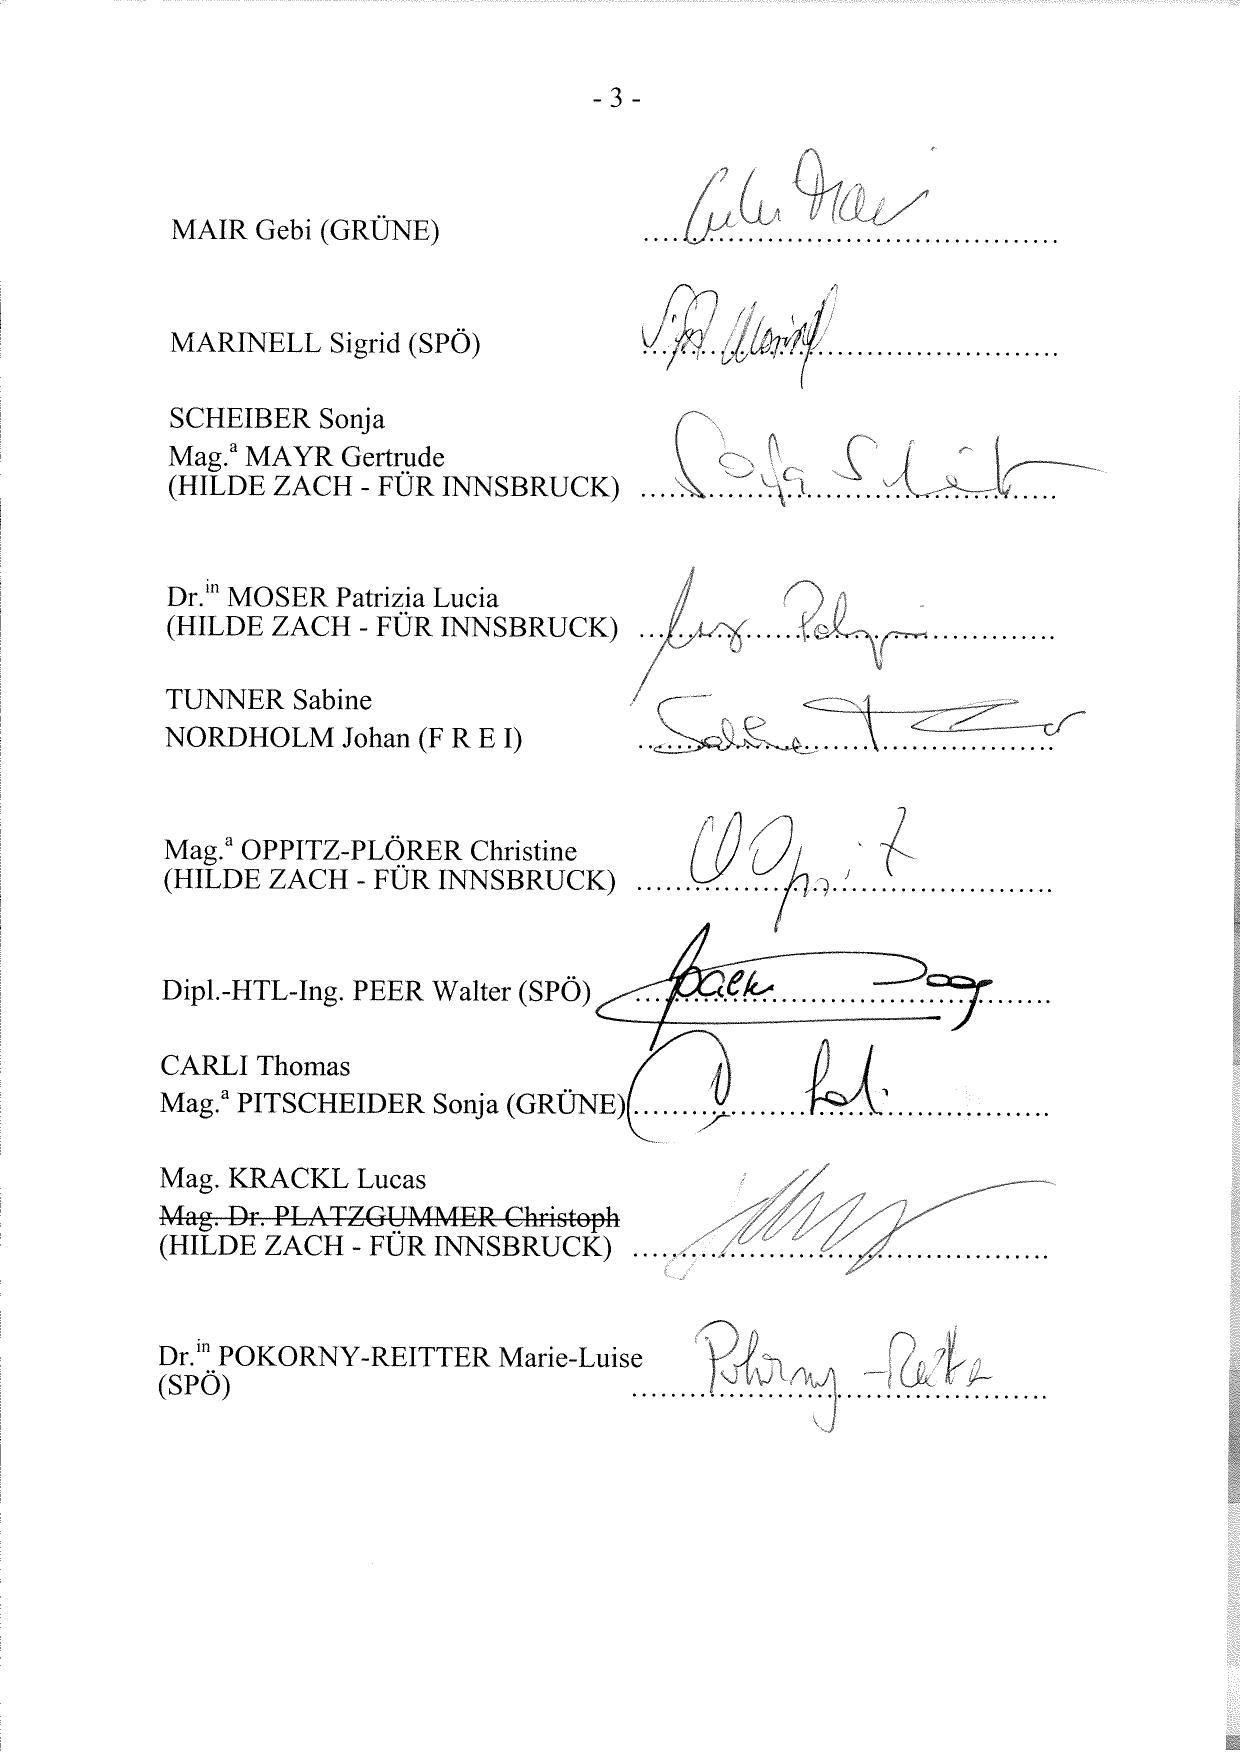 - 3 -
MAIR Gebi (GRÜNE) ..........
MARINELL Sigrid (SPÖ) ..........
SCHEIBER Sonja
Mag.ª MAYR Gertrude
(HILDE ZACH - FÜR INNSBRUCK) .......... Sonja
Dr.in MOSER Patrizia Lucia
(HILDE ZACH - FÜR INNSBRUCK) ..........
TUNNER Sabine
NORDHOLM Johan (F R E I) .......... Sabine
Mag.ª OPPITZ-PLÖRER Christine
(HILDE ZACH - FÜR INNSBRUCK) ..........
Dipl.-HTL-Ing. PEER Walter (SPÖ) ..........
CARLI Thomas
Mag.ª PITSCHEIDER Sonja (GRÜNE) ..........
Mag. KRACKL Lucas
Mag. Dr. PLATZGUMMER Christoph
(HILDE ZACH - FÜR INNSBRUCK) ..........
Dr.in POKORNY-REITTER Marie-Luise
(SPÖ) .......... Pokorny-Reitter